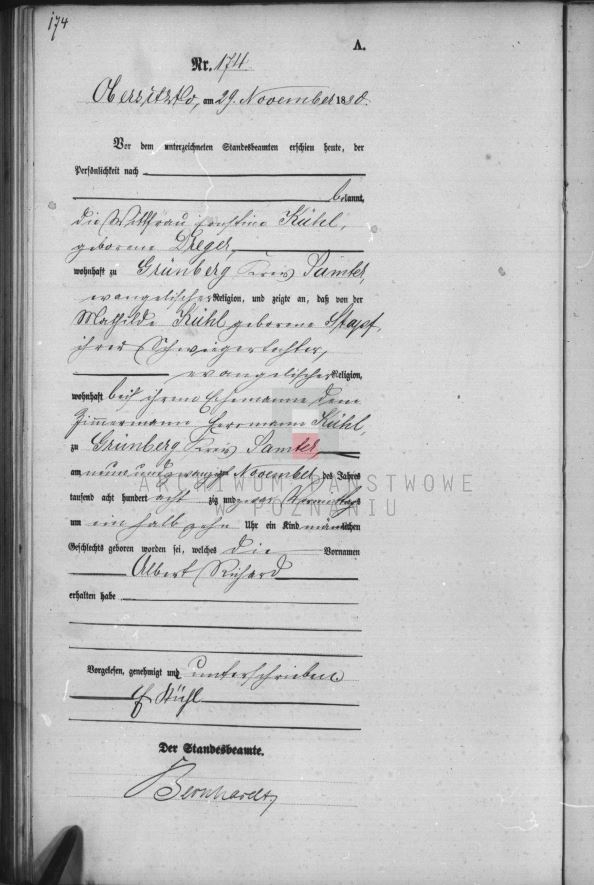 174
A.
Nr. 174.
Obersitzko, am 29. November 1880.
Vor dem unterzeichneten Standesbeamten erschien heute, der
Persönlichkeit nach
bekannt,
die Wittfrau Kühl,
geborene Dreger,
wohnhaft zu Grünberg Kreis Samter,
evangelischer Religion, und zeigte an, daß von der
Mathilde Kühl geborene Stapf,
ihrer Schwiegertochter,
evangelischer Religion,
wohnhaft bei ihrem Ehemanne dem
Zimmermann Herrmann Kühl,
zu Grünberg Kreis Samter,
am neunundzwanzigsten November des Jahres
tausend acht hundert achtzig und zwar Vormittags
um ein halb zehn Uhr ein Kind männlichen
Geschlechts geboren worden sei, welches die Vornamen
Albert Richard
erhalten habe
Vorgelesen, genehmigt und unterschrieben
Kühl
Der Standesbeamte.
Bernhardt
ARCHIWUM PAŃSTWOWE
W POZNANIU